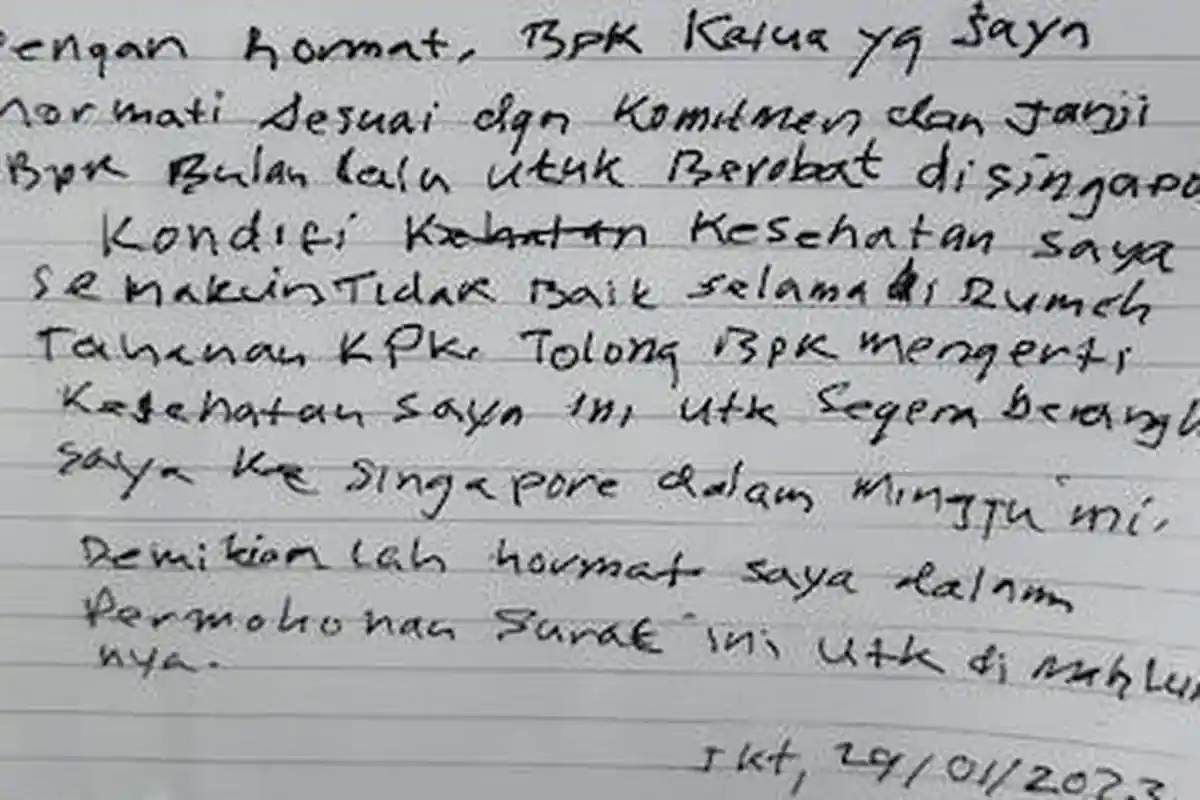 Dengan hormat, Bpk Ketua yg saya
hormati Sesuai dgn Komitmen dan Janji
Bpk Bulan lalu utuk Berobat disingapo
Kondisi Kehatan Kesehatan saya
semakin Tidak Baik selama di Rumah
Tahanan KPK. Tolong Bpk mengerti
Kesehatan saya ini utk Segera berangk
saya Ke Singapore dalam Minggu ini.
Demikian lah hormat saya dalam
Permohonan Surat ini utk di
nya.
Jkt, 29/01/2023